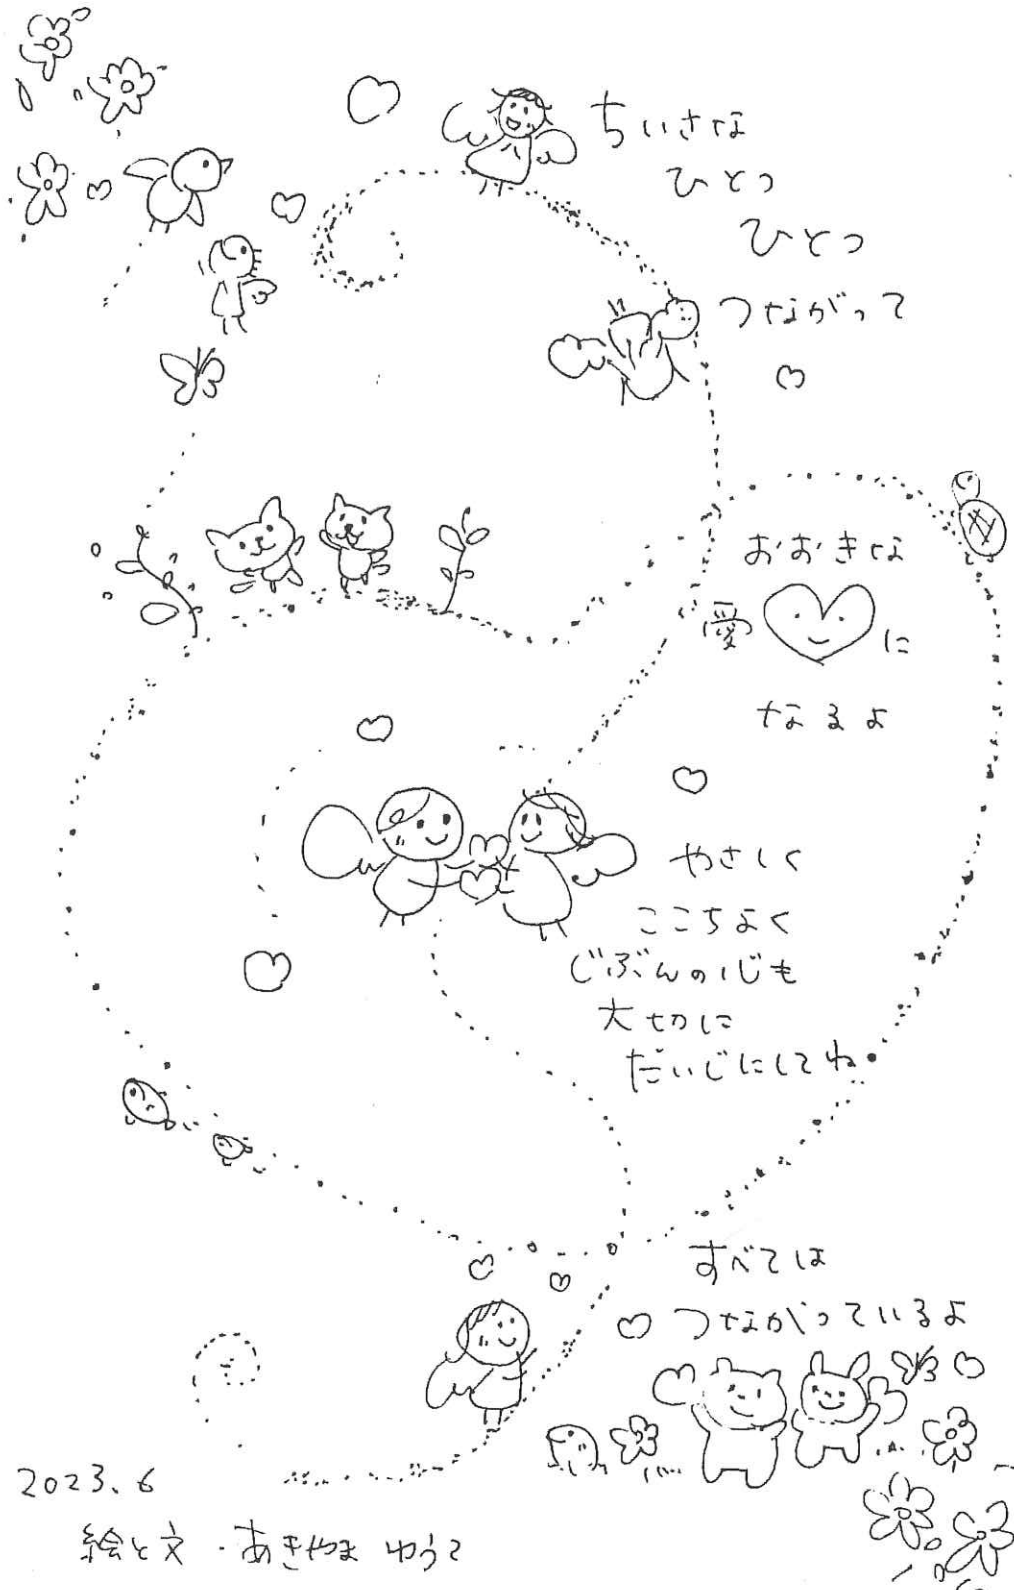 ちいさな
ひとつ
ひとつ
つながって
おおきな
愛に
なるよ
やさしく
ここちよく
じぶんの心も
大切に
だいじにしてね
すべては
つながっているよ
2023.6
絵と文・あきやま ゆうこ